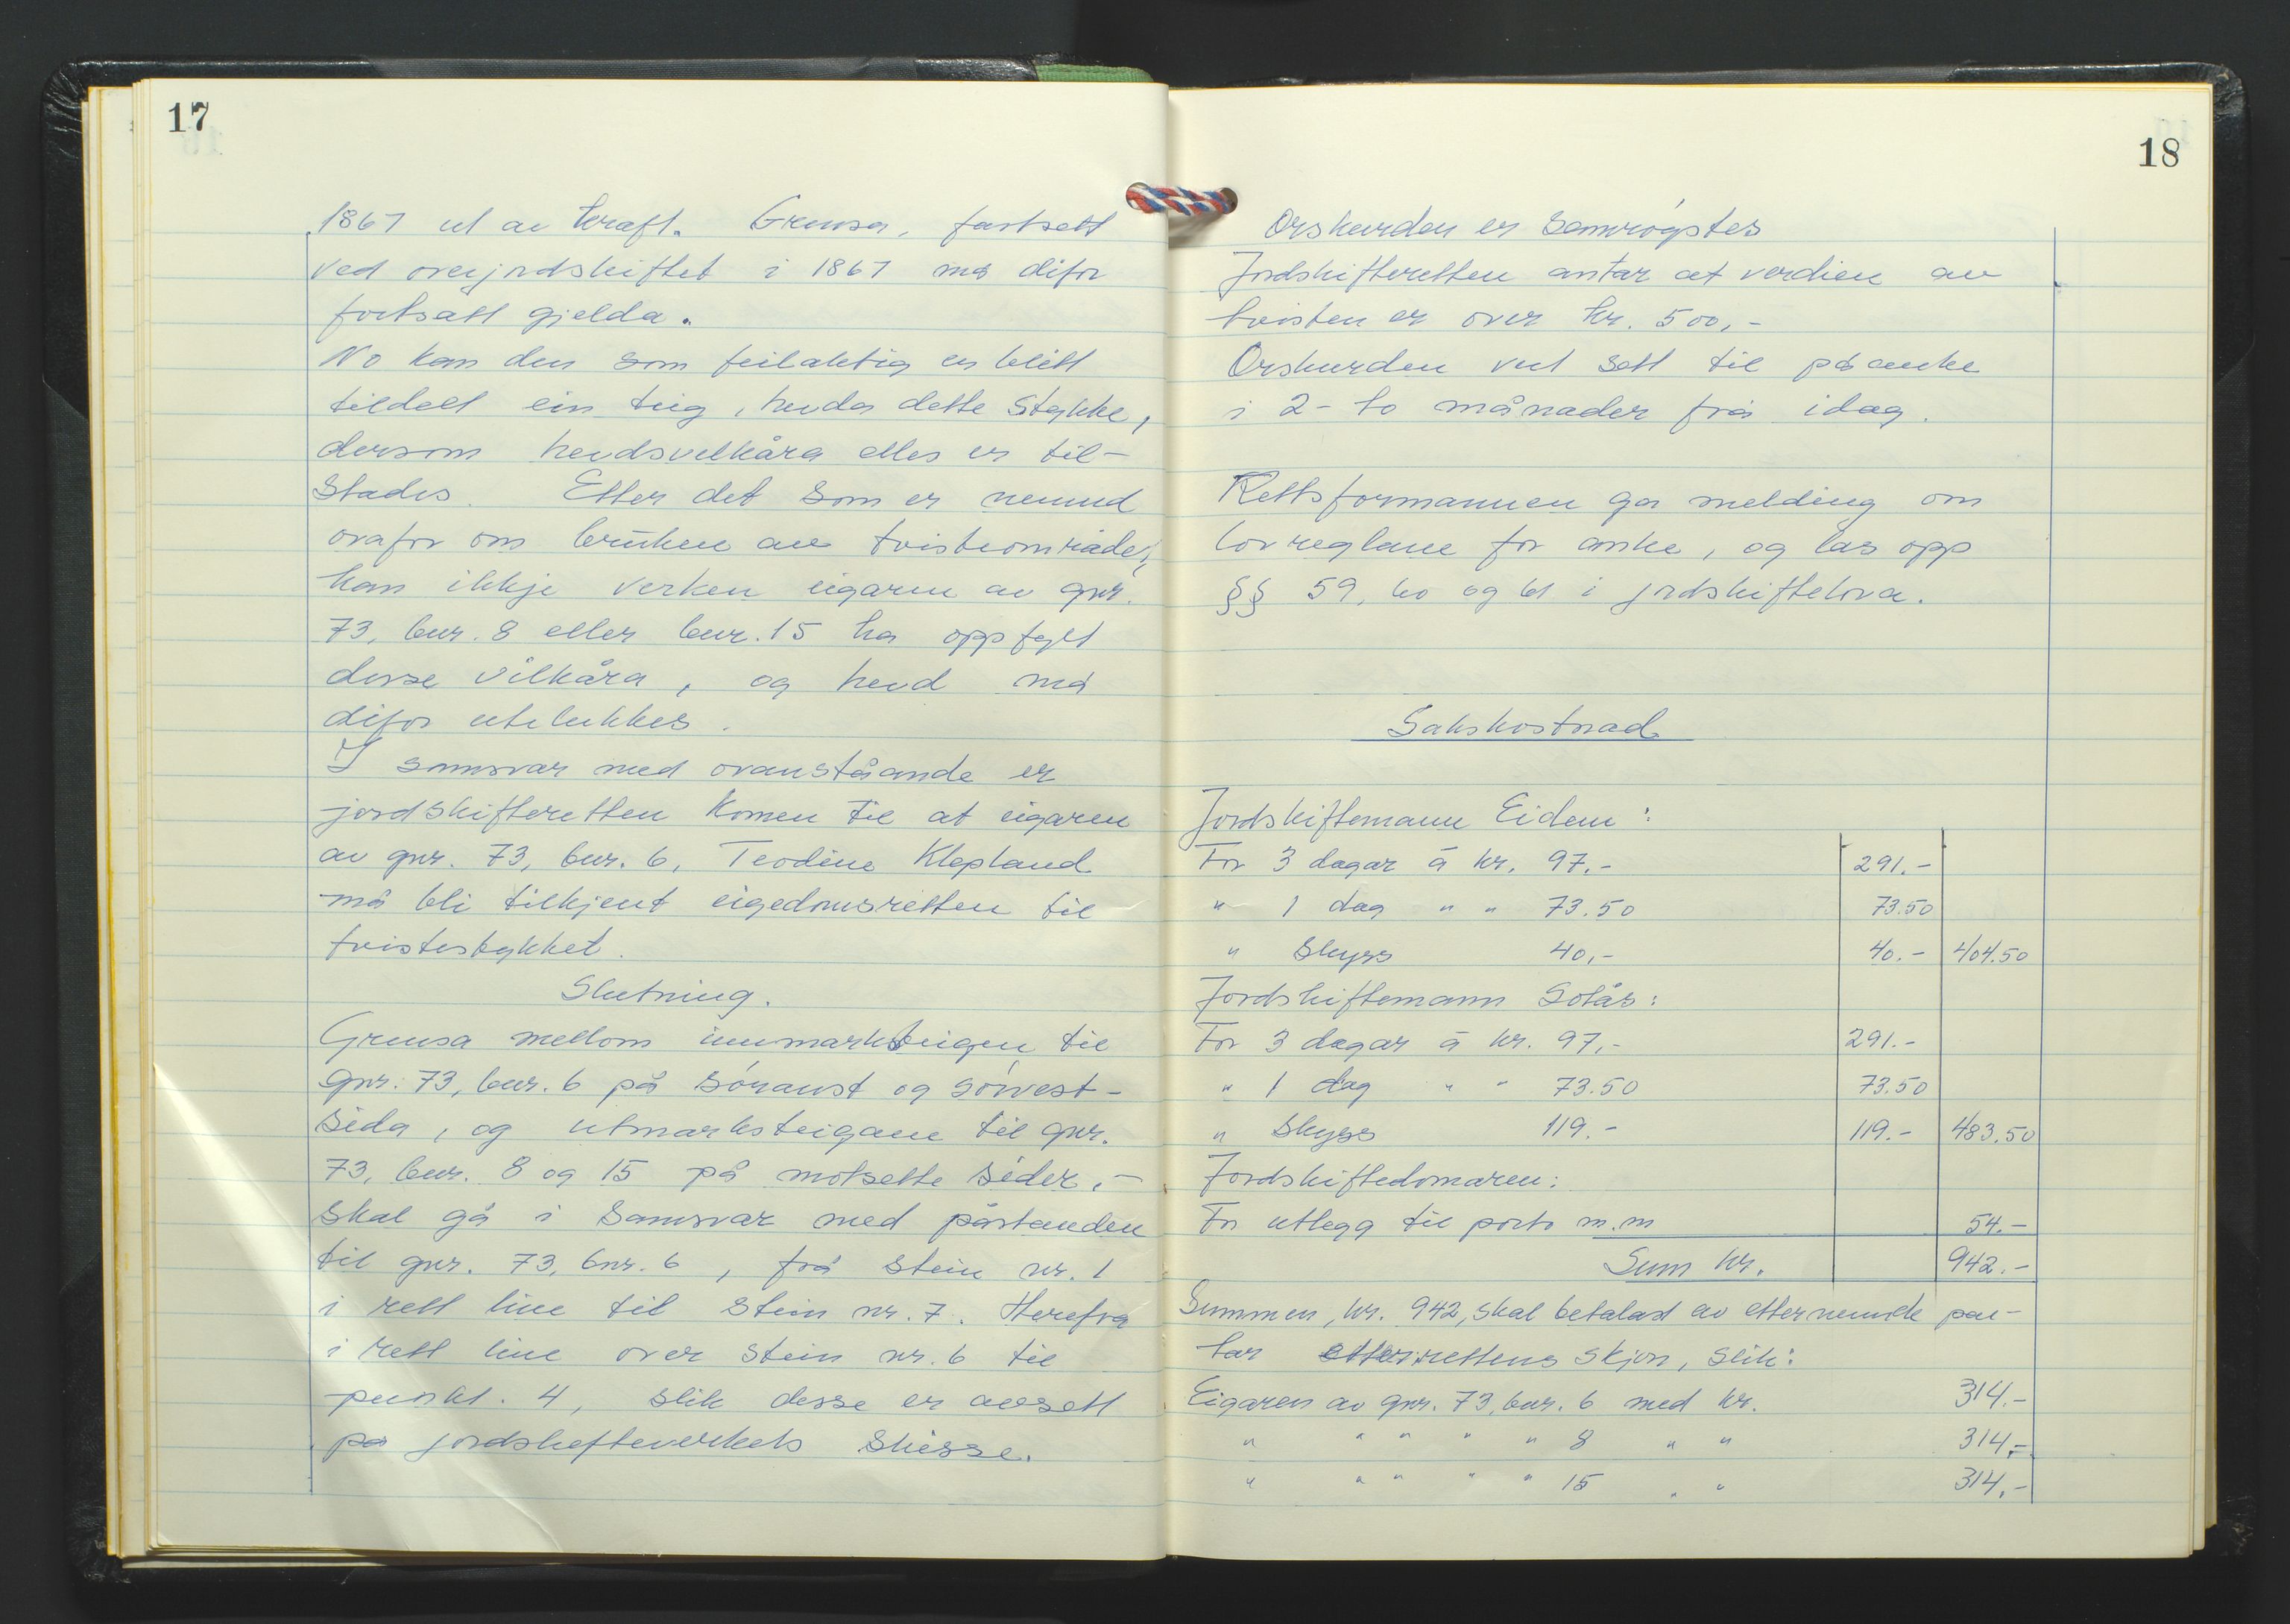 17
1867 ut av kraft. Grensa, fastsett
ved overjordskiftet i 1867 må difor
fortsatt gjelda.
No kan den som feilaktig er blitt
tildelt ein teig, hevda dette stykke,
dersom hevdsvilkåra elles er til-
stades. Etter det som er nemnd
ovafor om bruken av tvisteområdet,
kan ikkje verken eigaren av gnr.
73, bnr. 8 eller bnr. 15 ha oppfylt
desse vilkåra, og hevd må
difor utelukkes.
I samsvar med ovanståande er
jordskifteretten komen til at eigaren
av gnr. 73, bnr. 6, Teodine Klepland
må bli tilkjent eigedomsretten til
tvistestykket.
Slutning.
Grensa mellom innmarksteigen til
gnr. 73, bnr. 6 på søraust og sørvest-
sida, og utmarksteigane til gnr.
73, bnr. 8 og 15 på motsette sider, -
skal gå i samsvar med påstanden
til gnr. 73, bnr. 6, frå stein nr. 1
i rett line til stein nr. 7. Herefra
i rett line over stein nr. 6 til
punkt. 4, slik desse er avsett
på jordskifteverkets skisse.
18
Orskurden er samrøystes
Jordskifteretten antar at verdien av
tvisten er over kr. 500,-
Orskurden vert sett til påanke
i 2- to månader frå idag.
Rettsformannen ga melding om
lovreglane for anke, og las opp
§§ 59, 60 og 61 i jordskiftelova.
Sakskostnad
Jordskiftemann Eidem:
For 3 dagar á kr. 97.- 291.-
" 1 dag " " 73.50 73.50
" Skyss 40,- 40.- 404.50
Jordskiftemann Solås:
For 3 dagar á kr. 97,- 291.-
" 1 dag " " 73.50 73.50
" Skyss 119.- 119.- 483.50
Jordskiftedomaren:
For utlegg til porto m.m 54.-
Sum kr. 942.-
Summen, kr. 942, skal betalast av etternemnde par-
tar etter rettens skjøn, slik:
Eigaren av gnr. 73, bnr. 6 med kr. 314.-
" " " " " 8 " " 314,-
" " " " " 15 " " 314,-